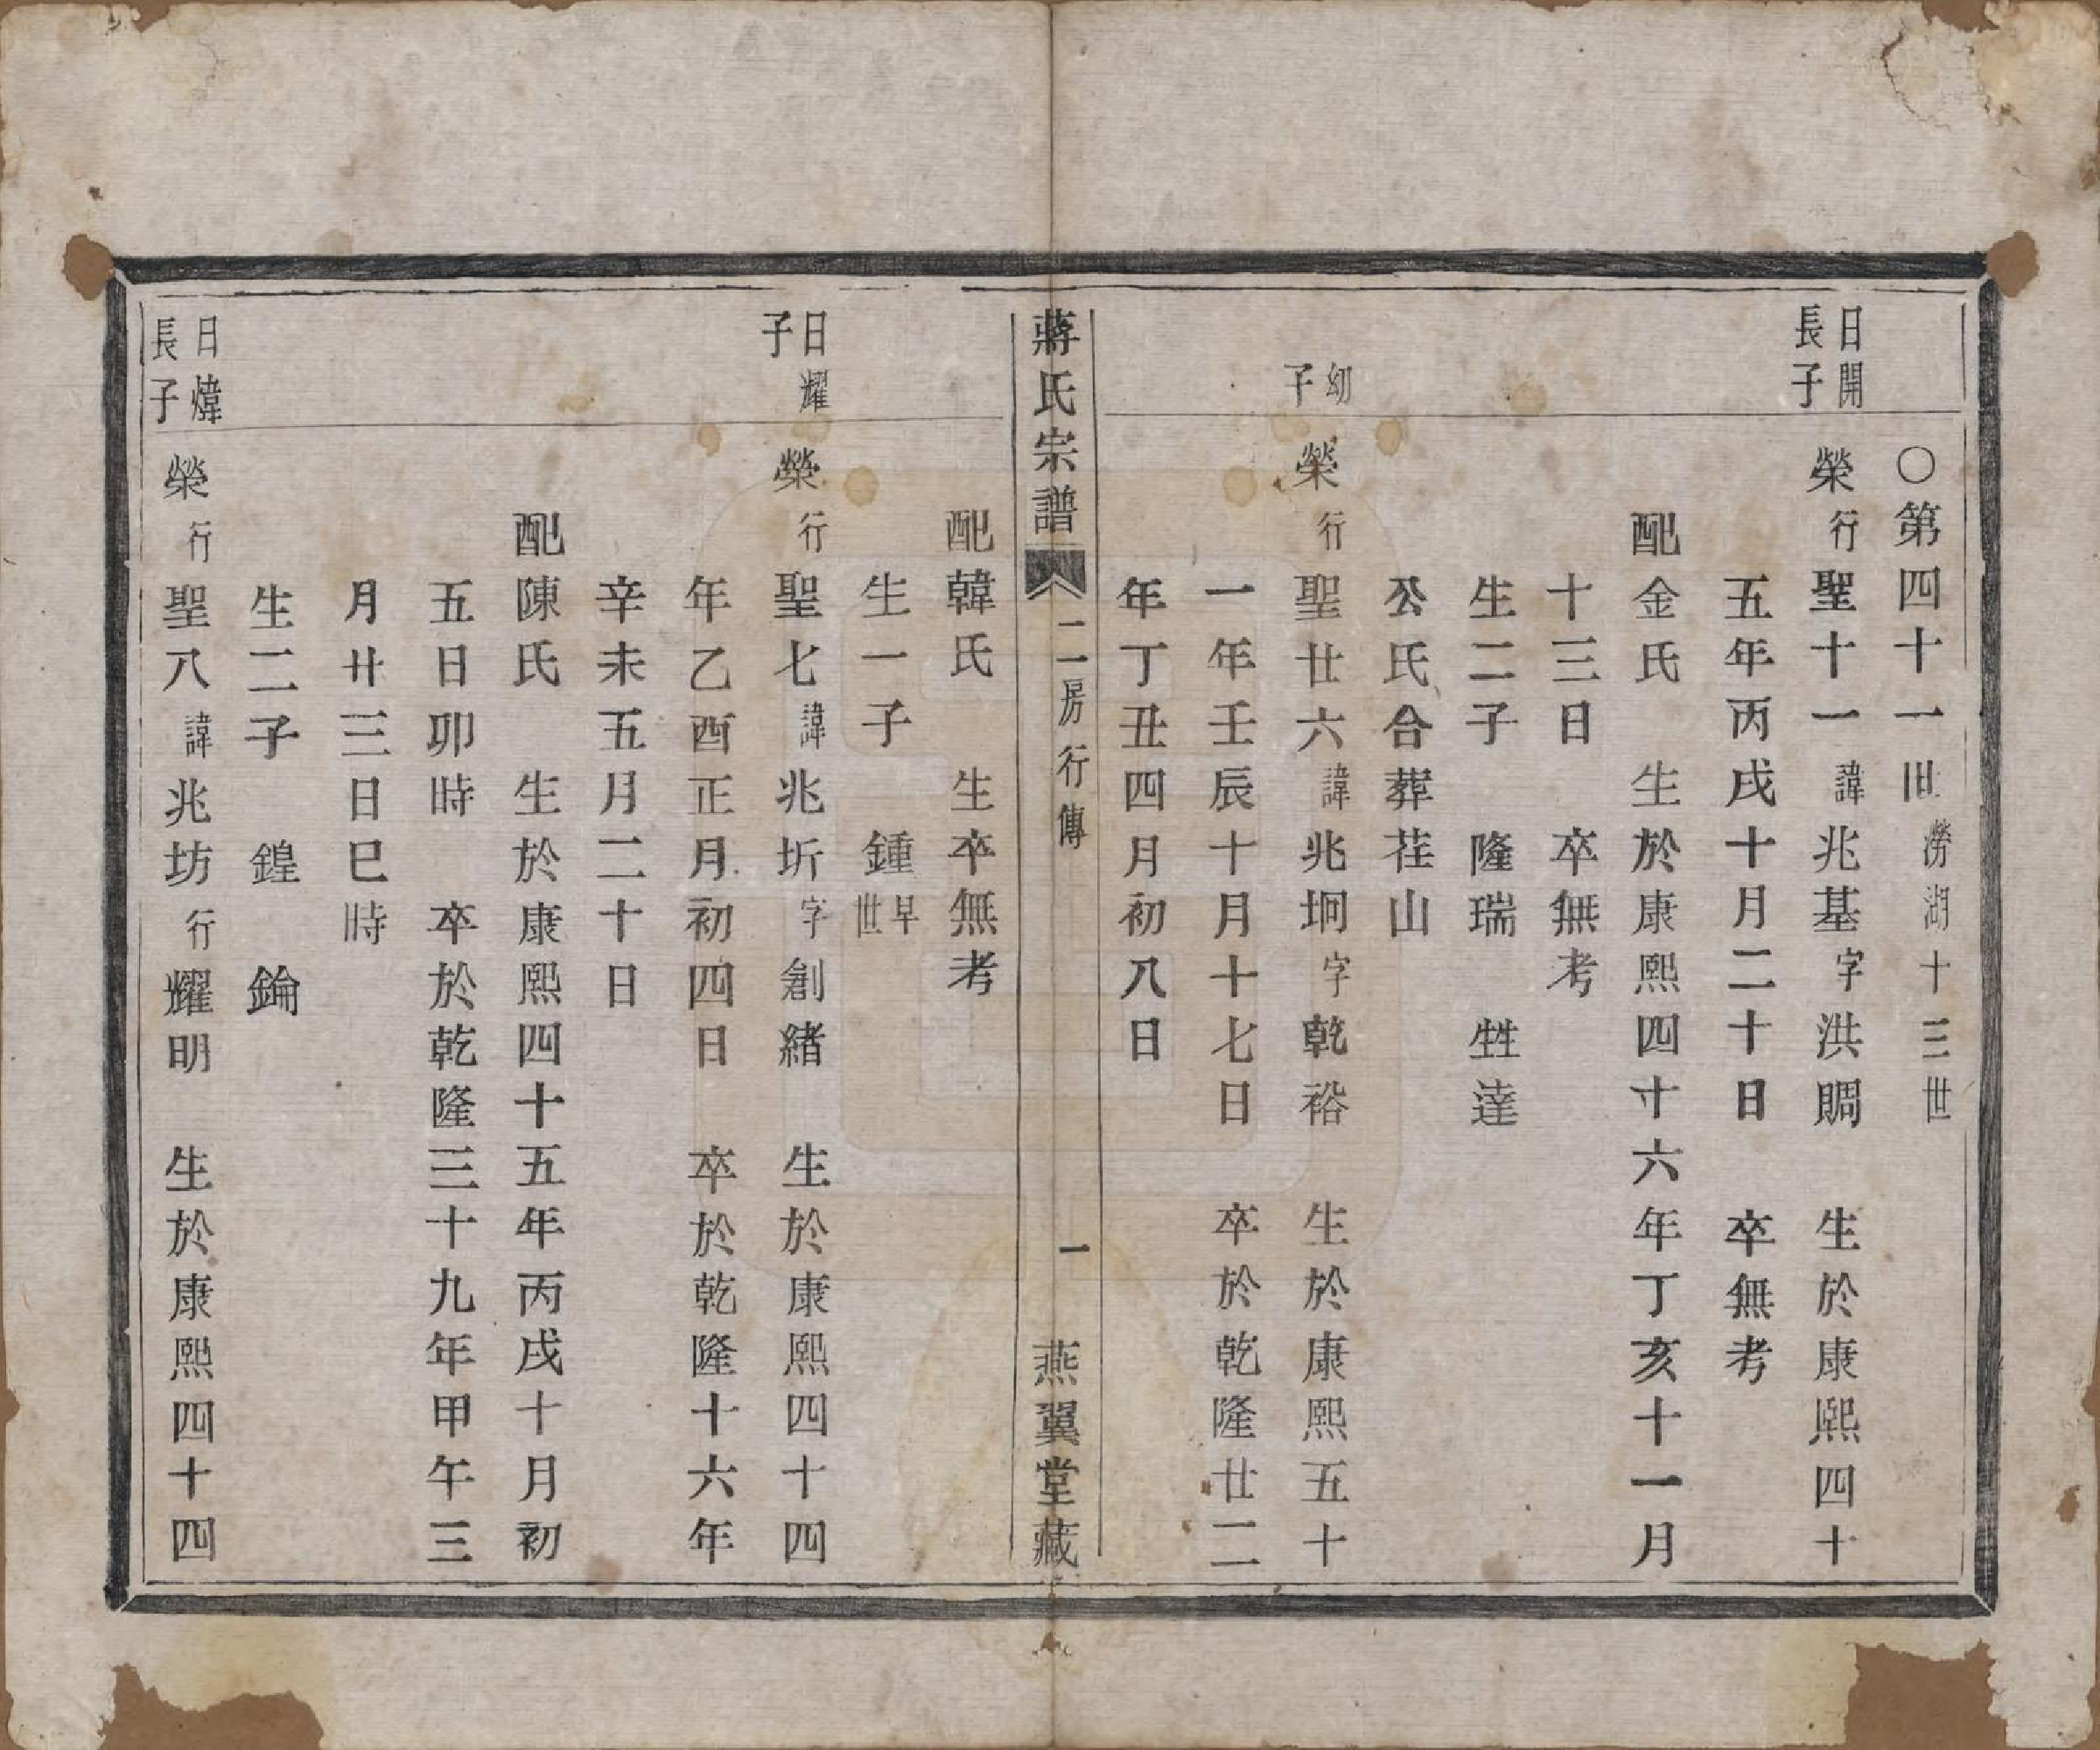 ○第四十一世澇湖十三世
日開長子
榮行聖十一諱兆基字洪賙　生於康熙四十
五年丙戌十月二十日　卒無考
配金氏　生於康熙四十六年丁亥十一月
十三日　卒無考
生二子　隆瑞　甡達
公氏合葬茬山
幼子
榮行聖廿六諱兆坰字乾裕　生於康熙五十
一年壬辰十月十七日　卒於乾隆廿二
年丁丑四月初八日
蔣氏宗譜　二房行傳　一　燕翼堂藏
配韓氏　生卒無考
生一子　鍾早世
日耀子
榮行聖七諱兆圻字創緒　生於康熙四十四
年乙酉正月初四日　卒於乾隆十六年
辛未五月二十日
配陳氏　生於康熙四十五年丙戌十月初
五日卯時　卒於乾隆三十九年甲午三
月廿三日巳時
生二子　鍠　錀
日煒長子
榮行聖八諱兆坊行耀明　生於康熙四十四